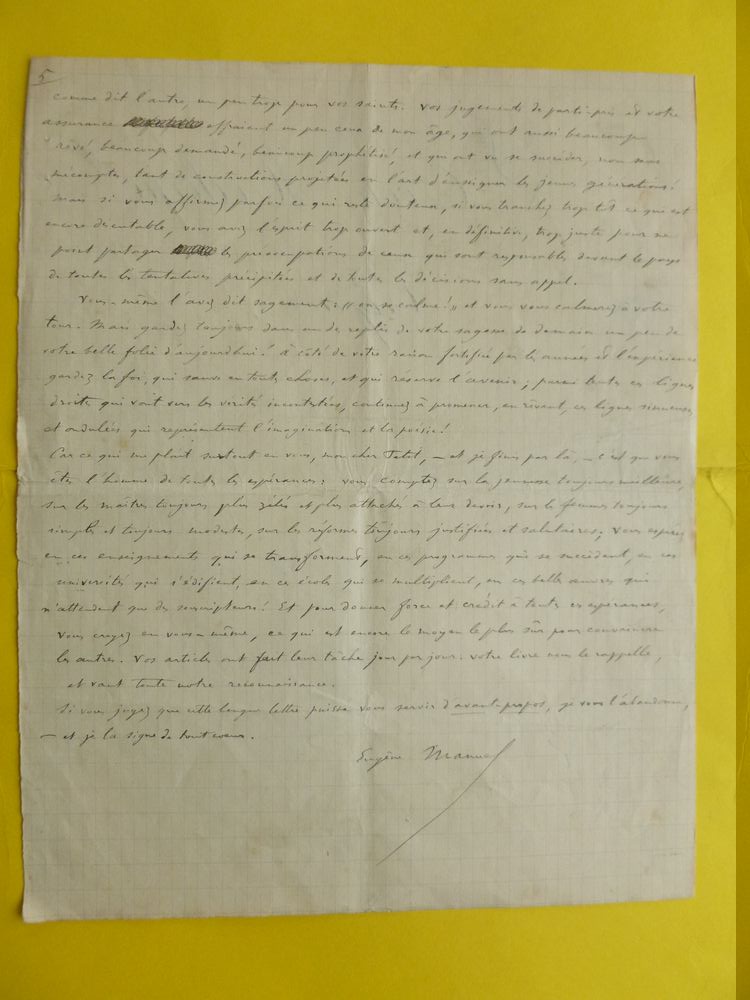 5
comme dit l'autre, un peu trop pour vos saints. Vos jugements de parti-pris et votre
assurance effraient un peu ceux de mon âge, qui ont aussi beaucoup
rêvé, beaucoup demandé, beaucoup prophétisé, et qui ont vu se succéder, non sans
mécomptes, tant de constructions projetées en l'art d'enseigner les jeunes générations!
Mais si vous affirmez parfois ce qui reste douteux, si vous tranchez trop tôt ce qui est
encore discutable, vous avez l'esprit trop ouvert et, en définitive, trop juste pour ne
point partager les préoccupations de ceux qui sont responsables devant le pays
de toutes les tentatives précipitées et de toutes les décisions sans appel.
Vous-même l'avez dit sagement: "on se calme!" et vous vous calmerez à votre
tour. Mais gardez toujours dans un des replis de votre sagesse de demain un peu de
votre belle folie d'aujourd'hui! à côté de votre raison fortifiée par les années et l'expérience
gardez la foi, qui sauve en toutes choses, et qui réserve l'avenir; parmi toutes ces lignes
droites qui vont vers les vérités incontestées, continuez à promener, en rêvant, ces lignes sinueuses
et ondulées qui représentent l'imagination et la poésie!
Car ce qui me plaît surtout en vous, mon cher — et je finis par là, — c'est que vous
êtes l'homme de toutes les espérances: vous comptez sur la jeunesse toujours meilleure,
sur les maîtres toujours plus zélés et plus attachés à leur devoir, sur les femmes toujours
simples et toujours modestes, sur les réformes toujours justifiées et salutaires; vous espérez
en ces enseignements qui se transforment, en ces programmes qui se succèdent, en ces
universités qui s'édifient, en ces écoles qui se multiplient, en ces belles œuvres qui
n'attendent que des souscripteurs! Et pour donner force et crédit à toutes ces espérances,
vous croyez en vous-même, ce qui est encore le moyen le plus sûr pour convaincre
les autres. Vos articles ont fait leur tâche jour par jour: votre livre nous le rappelle,
et vaut toute notre reconnaissance.
Si vous jugez que cette longue lettre puisse vous servir d'avant-propos, je vous l'abandonne,
— et je la signe de tout cœur.
Eugène Manuel